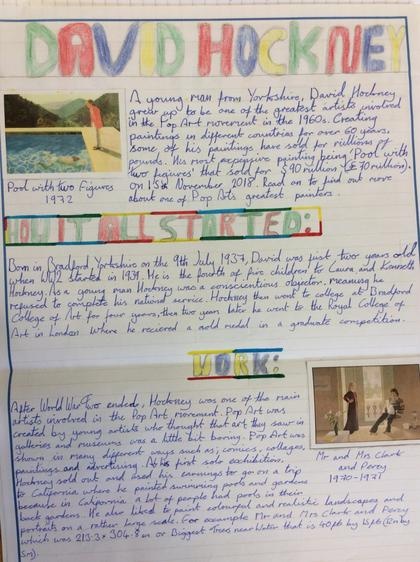 DAVID HOCKNEY
A young man from Yorkshire, David Hockney
grew up to be one of the greatest artists involved
in the Pop Art movement in the 1960s. Creating
paintings in different countries for over 60 years,
some of his paintings have sold for millions of
pounds. His most expensive painting being 'Pool with
two figures' that sold for $90 million (£70 million).
on 15th November 2018. Read on to find out more
about one of Pop Arts greatest painters.
Pool with two Figures
1972
HOW IT ALL STARTED:
Born in Bradford Yorkshire on the 9th July 1937, David was just two years old
when WW2 started in 1939. He is the fourth of five children to Laura and Kenneth
Hockney. As a young man Hockney was a conscientious objector, meaning he
refused to complete his national service. Hockney then went to college at Bradford
College of Art for four years, then two years later he went to the Royal College of
Art in London where he recieved a gold medal in a graduate competition.
WORK:
After World War Two ended, Hockney was one of the main
artists involved in the Pop Art movement. Pop Art was
created by young artists who thought that art they saw in
galleries and museums was a little bit boring. Pop Art was
shown in many different ways such as; comics, collages,
paintings and advertising. At his first solo exhibition,
Hockney sold out and used his earnings to go on a trip
to California where he painted swimming pools and gardens
because in California a lot of people had pools in their
back gardens. He also liked to paint colourful and realistic landscapes and
portraits on a rather large scale. For example Mr and Mrs Clark and Percy
which was 213.3 × 304.8 cm or Biggest Trees near Water that is 40ft by 15ft
Mr and Mrs Clark
and Percy
1970-1971